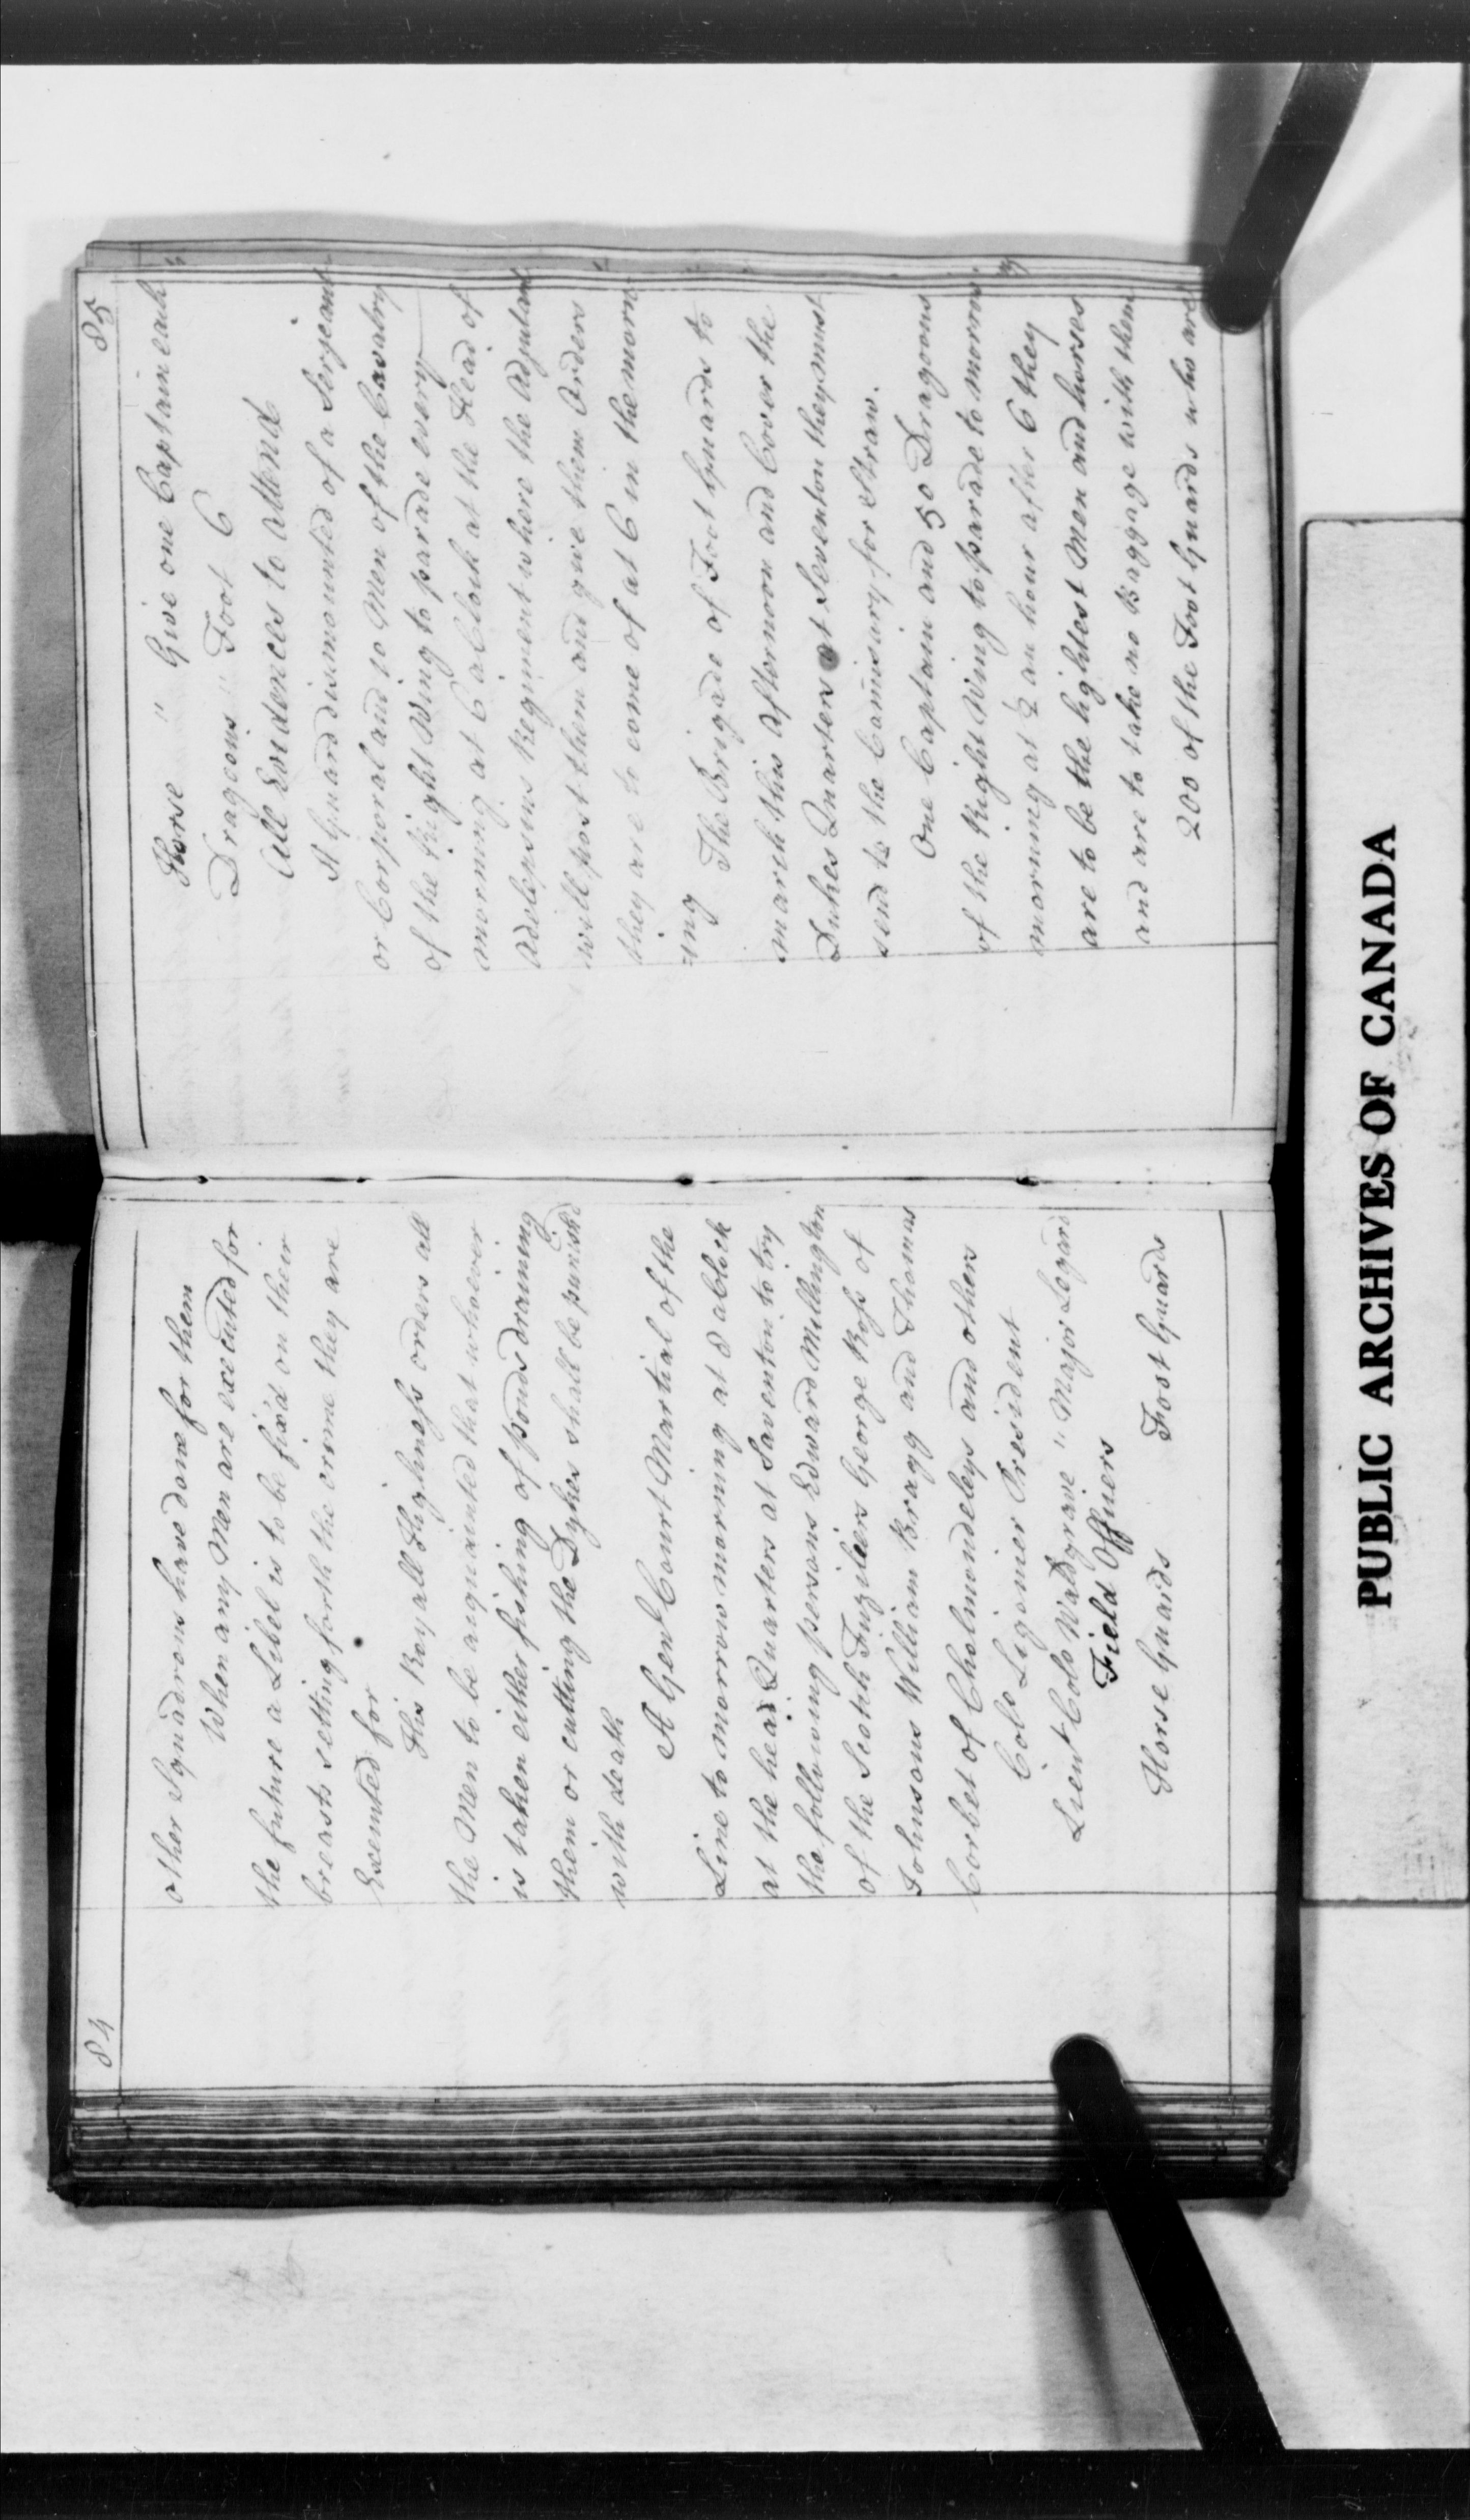 84
other Squadrons have done for them
When any Men are executed for
the future a Libel is to be fixd on their
breasts setting forth the crime they are
Executed for
His Royall Highness orders all
the Men to be acquainted that whoever
is taken either fishing of ponds draining
them or cutting the Dykes shall be punishd
with death
A Genl Court Martial of the
Line to morrow morning at 8 a Clock
at the head Quarters at Saventon to try
the following persons Edward Millington
of the Scotch Fuziliers George Ross of
Johnsons William Bragg and Thomas
Corbet of Cholmondeleys and others
Colo Ligonier President
Lieut Colo Waldgrave " Major Legard
Field Officers
Horse Guards Foot Guards
85
Horse " Give one Captain each
Dragoons " Foot 6
All Evidences to attend
A Guard dismounted of a Serjeant
or Corporal and 10 Men of the Cavalry
of the Right Wing to parade every
morning at 6 a Clock at the Head of
Adelepsens Regiment where the Adjutant
will post them and give them Orders
they are to come of at 6 in the morn
=ing
The Brigade of Foot Guards to
march this afternoon and Cover the
Dukes Quarters at Seventon they must
send to the Comissary for Straw.
One Captain and 50 Dragoons
of the Right Wing to parade to morrow
morning at ½ an hour after 6 they
are to be the lightest Men and horses
and are to take no Baggage with them
200 of the Foot Guards who are
PUBLIC ARCHIVES OF CANADA